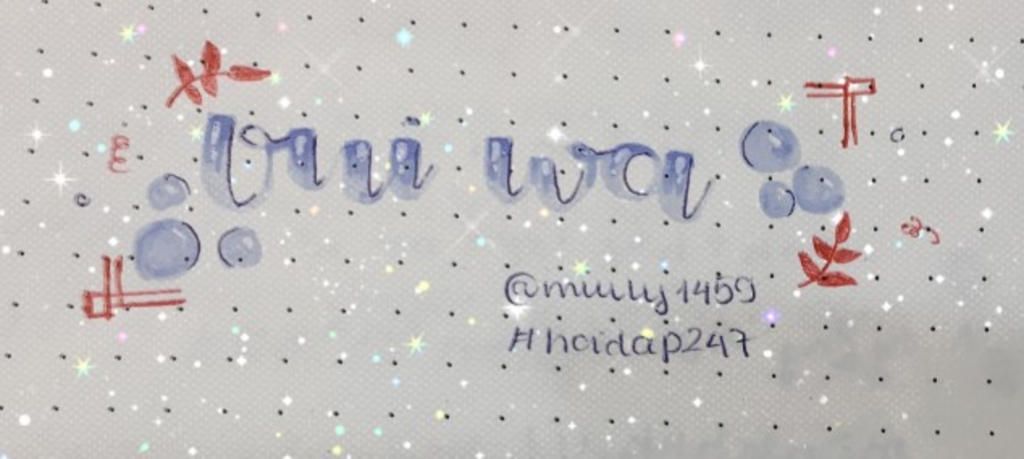 Vui wa
@muily1459
#hoidap247